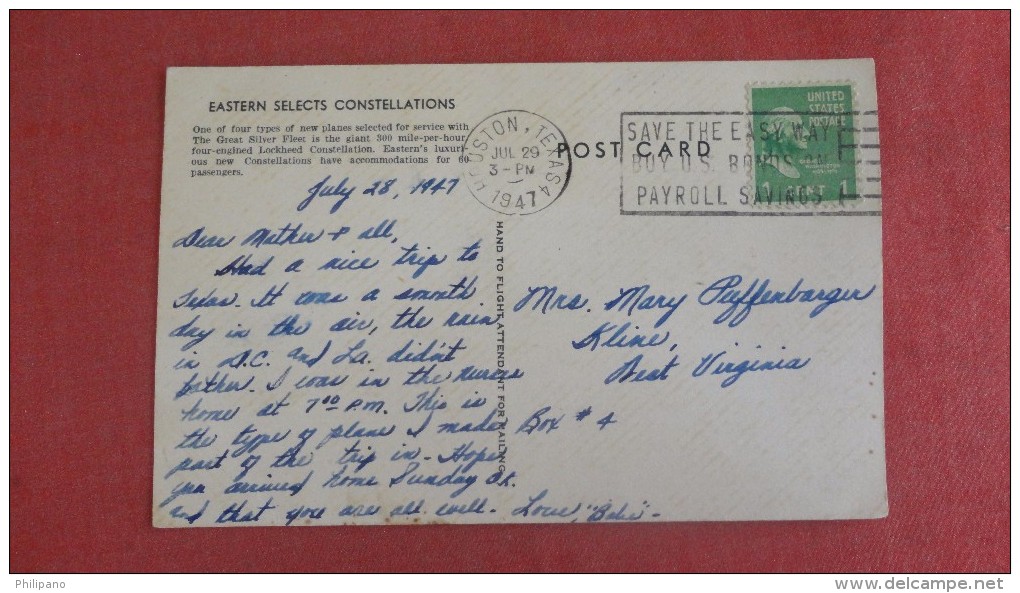 EASTERN SELECTS CONSTELLATIONS
One of four types of new planes selected for service with
The Great Silver Fleet is the giant 300 mile-per-hour,
four-engined Lockheed Constellation. Eastern's luxuri-
ous new Constellations have accommodations for 60
passengers.
July 28, 1947
Dear Mother & all,
Had a nice trip to
Texas. It was a smooth
day in the air, the rain
in D.C. and La. didn't
bother. I was in the nurses
home at 7:00 P.M. This is
the type of plane I made
part of the trip in - Hope
you arrived home Sunday OK.
and that you are all well. - Love, "Babe" -
HAND TO FLIGHT ATTENDANT FOR MAILING
HOUSTON, TEXAS 4
JUL 29
3 - PM
1947
POST CARD
SAVE THE EASY WAY
BUY U.S. BONDS
PAYROLL SAVINGS
UNITED
STATES
POSTAGE
1 CENT 1
Mrs. Mary Puffenbarger
Kline,
West Virginia
Box # 4
Philipano
www.delcampe.net